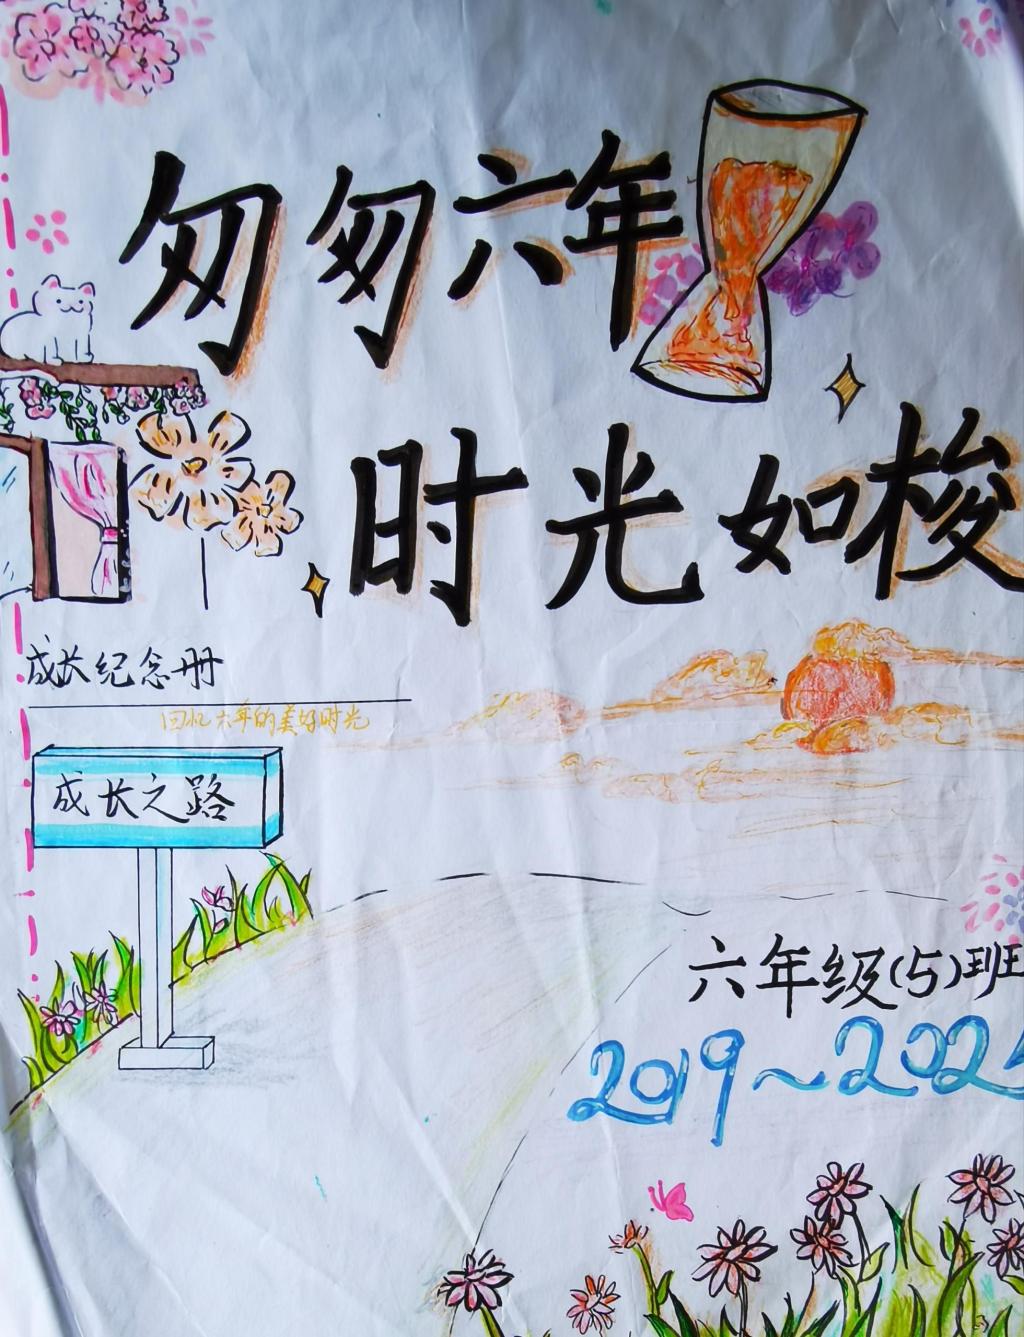 匆匆六年
时光如梭
成长纪念册
回忆六年的美好时光
成长之路
六年级(5)班
2019~202